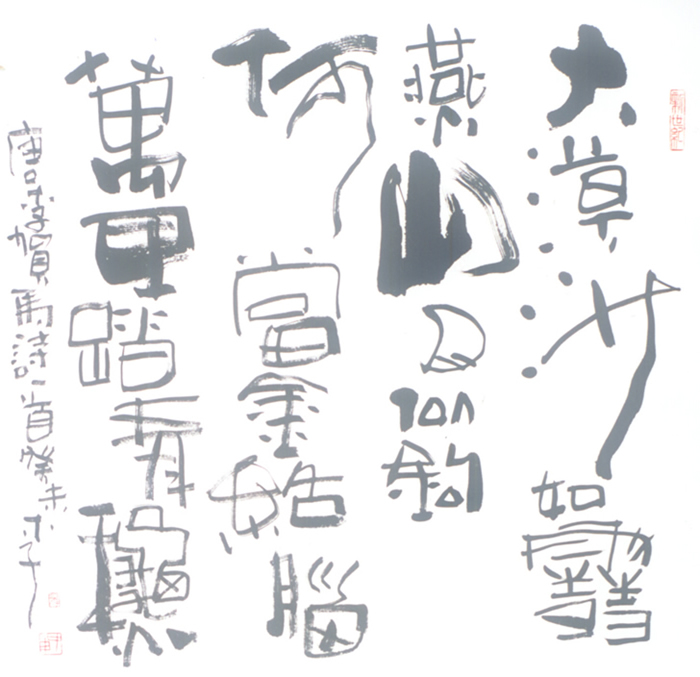 大漠沙如雪
燕山月似鉤
何當金絡腦
萬里踏青穐
唐李賀馬詩一首癸未木子